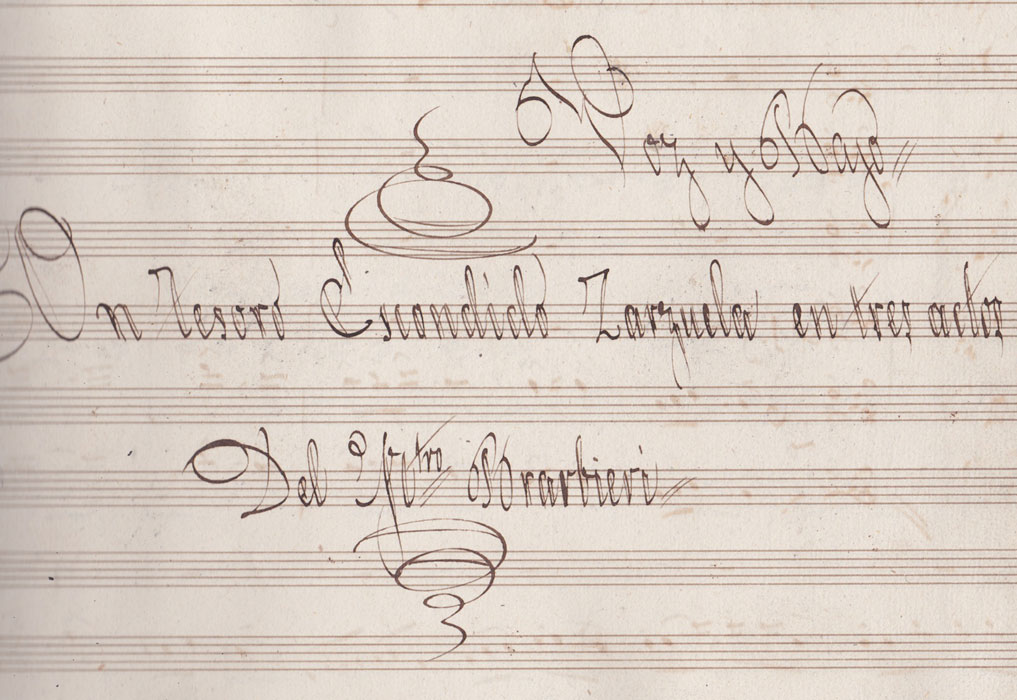 Voz y Bajo
Un tesoro Escondido Zarzuela en tres actos
Del Mtro Brarbieri